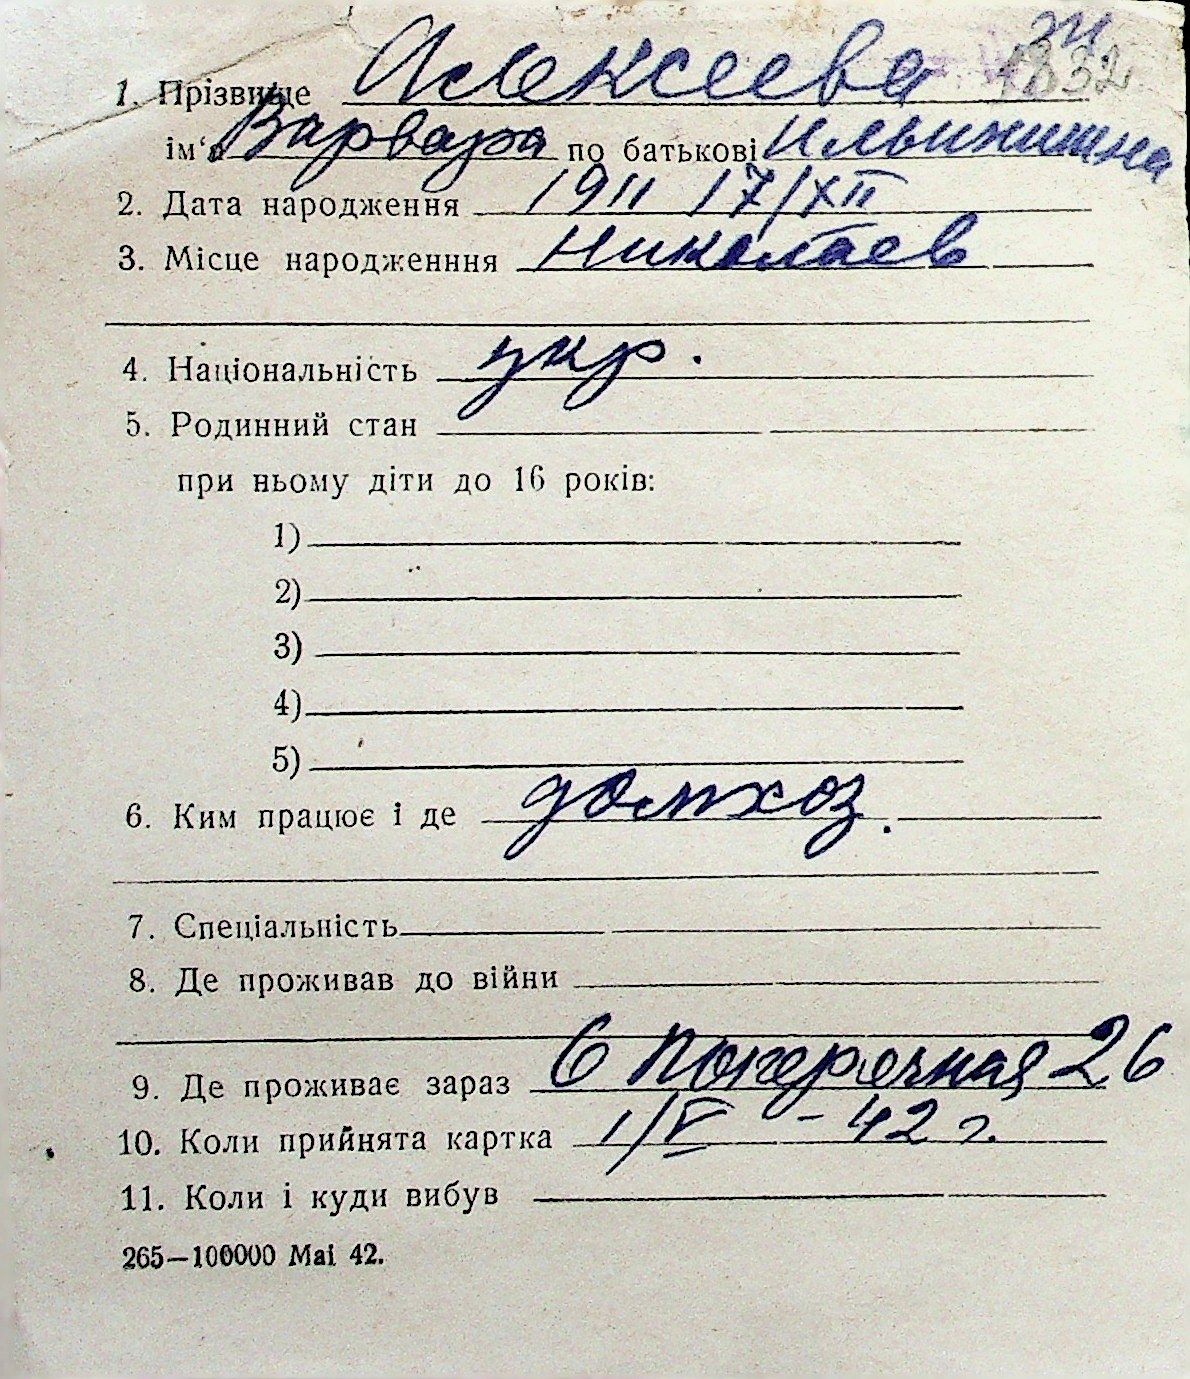 1832
1. Прізвище Алексеева
ім'я Варвара по батькові Ильинишна
2. Дата народження 1911 17/XII
3. Місце народженння Николаев
4. Національність укр.
5. Родинний стан
при ньому діти до 16 років:
1)
2)
3)
4)
5)
6. Ким працює і де домхоз.
7. Спеціальність
8. Де проживав до війни
9. Де проживає зараз 6 Поперечная 26
10. Коли прийнята картка 1/V - 42 г.
11. Коли і куди вибув
265—100000 Mai 42.